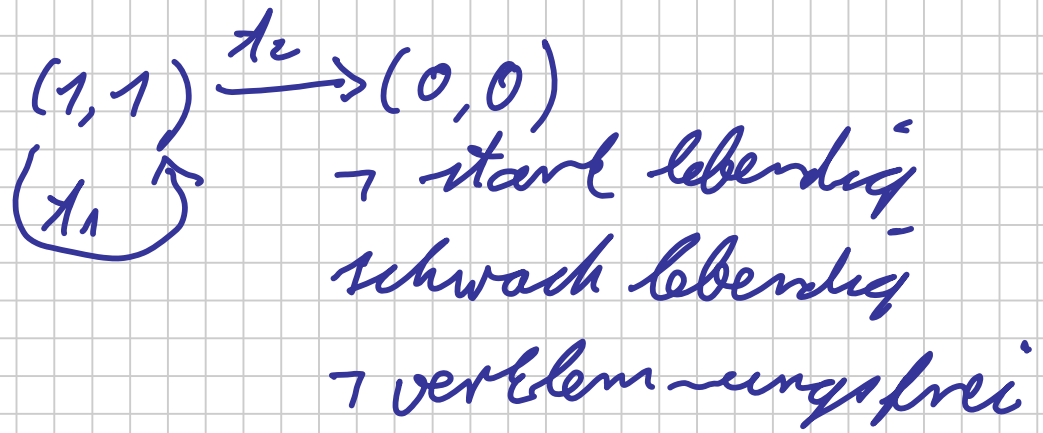 t₂
(1,1) → (0,0)
t₁
¬ stark lebendig
schwach lebendig
¬ verklemmungsfrei